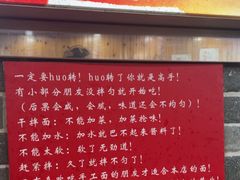 一定要huo转！huo转了你就是高手！
有小部分朋友没拌匀就开始吃！
（后果会咸，会咸，味道还会不均匀）！
干拌面：不能加菜，加菜抢味！
不能加水：加水就巴不起来酱料了！
不能太软：软了无劲道！
赶紧拌：久了就拌不匀了！
手工面的朋友才适合本店的面！